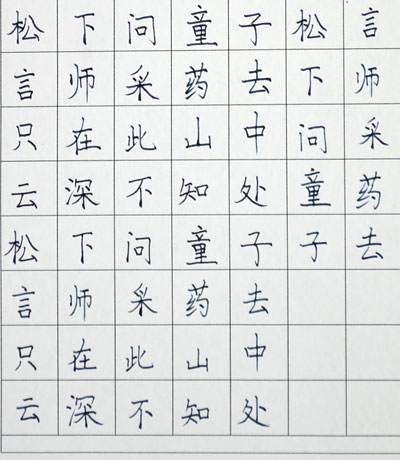 松下问童子松言
言师采药去下师
只在此山中问采
云深不知处童药
松下问童子子去
言师采药去
只在此山中
云深不知处